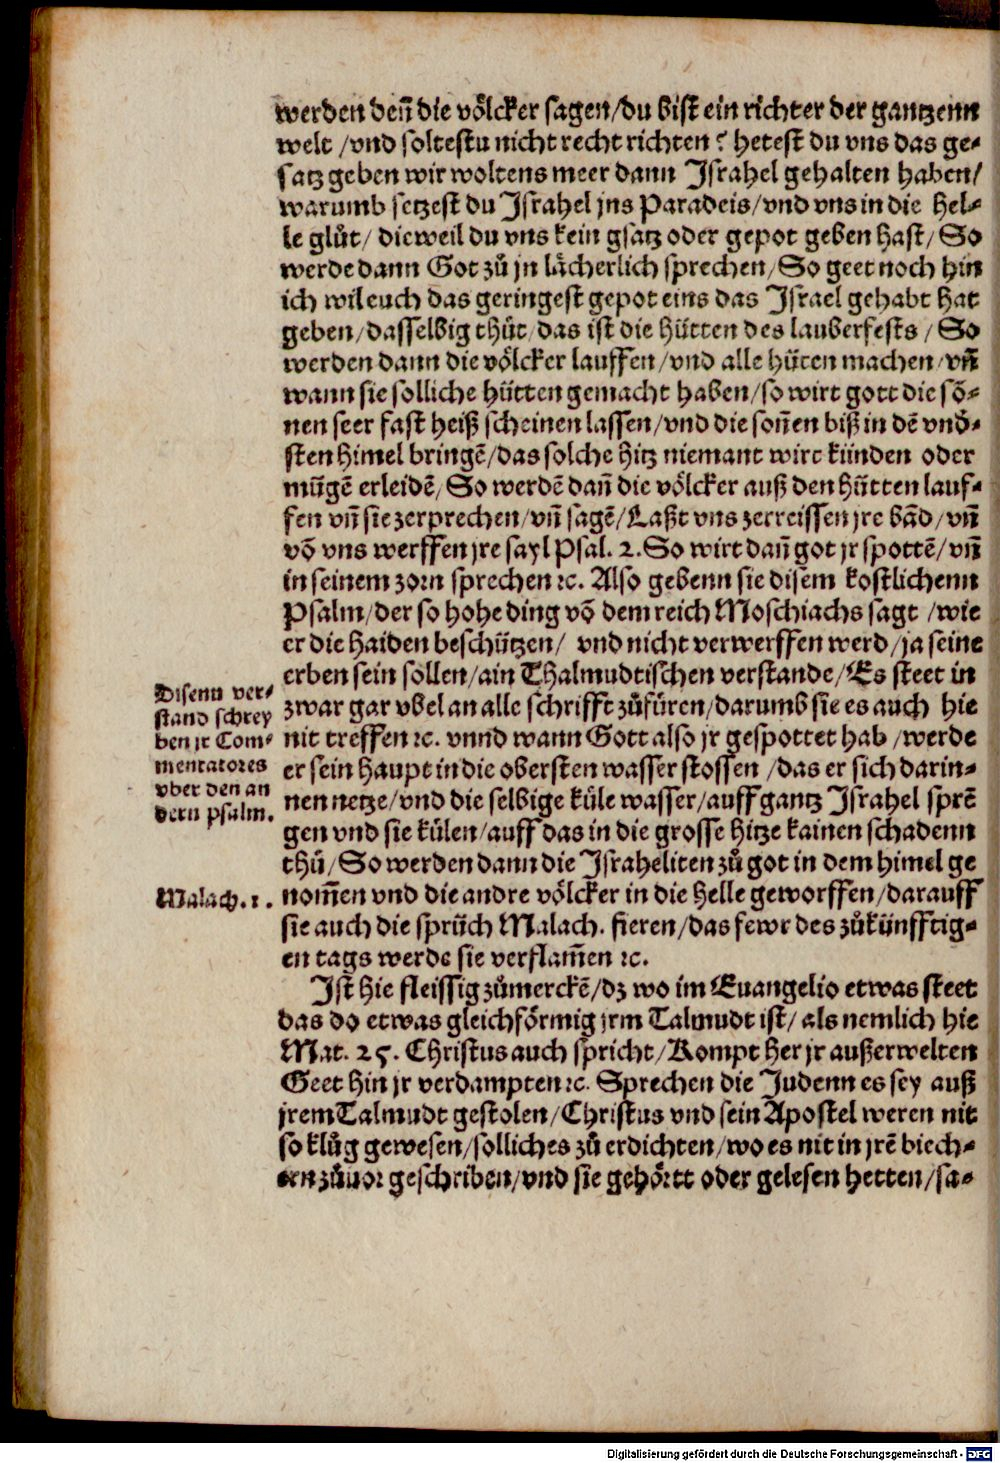 werden deñ die völcker sagen/du bist ein richter der gantzenn
welt /vnd soltestu nicht recht richten? hetest du vns das ge-
satz geben wir woltens meer dann Jsrahel gehalten haben/
warumb setzest du Jsrahel jns Paradeis/vnd vns in die hel-
le glůt/ dieweil du vns kein gsatz oder gepot geben hast/ So
werde dann Got zů jn lächerlich sprechen/So geet noch hin
ich wil euch das geringest gepot eins das Jsrael gehabt hat
geben/dasselbig thůt/das ist die hütten des lauberfests / So
werden dann die völcker lauffen/vnd alle hüten machen/vñ
wann sie solliche hütten gemacht haben/so wirt gott die sö-
nen seer fast heiß scheinen lassen/vnd die soñen biß in dē vnd-
sten himel bringē/das solche hitz niemant wirt künden oder
mügē erleidē/So werdē dañ die völcker auß den hütten lauf-
fen vñ sie zerprechen/vñ sagē/Laßt vns zerreissen jre bād/vñ
vō vns werffen jre sayl Psal. 2. So wirt dañ got jr spottē/vñ
in seinem zorn sprechen ꝛc. Also gebenn sie disem kostlichenn
Psalm/der so hohe ding vō dem reich Moschiachs sagt /wie
er die Haiden beschützen/ vnd nicht verwerffen werd/ja seine
erben sein sollen/ain Thalmudtischen verstande/Es steet in
zwar gar vbel an alle schrifft zůfüren/darumb sie es auch hie
nit treffen ꝛc. vnnd wann Gott also jr gespottet hab /werde
er sein haupt in die obersten wasser stossen /das er sich darin-
nen netze/vnd die selbige küle wasser/auff gantz Jsrahel sprē
gen vnd sie külen/auff das in die grosse hitze kainen schadenn
thů/So werden dann die Jsraheliten zů got in dem himel ge
nom̄en vnd die andre völcker in die helle geworffen/darauff
sie auch die sprüch Malach. fieren/das fewr des zůkünfftig-
en tags werde sie verflam̄en ꝛc.
Disenn ver-
stand schrey
ben jr Com-
mentatores
vber den an
dern psalm.
Malach. 1.
Jst hie fleissig zůmerckē/dz wo im Euangelio etwas steet
das do etwas gleichförmig jrm Talmudt ist/ als nemlich hie
Mat. 25. Christus auch spricht/Kompt her jr außerwelten
Geet hin jr verdampten ꝛc. Sprechen die Judenn es sey auß
jrem Talmudt gestolen/Christus vnd sein Apostel weren nit
so klůg gewesen/solliches zů erdichten/wo es nit in jrē biech-
ern zůuor geschriben/vnd sie gehörtt oder gelesen hetten/sa-
Digitalisierung gefördert durch die Deutsche Forschungsgemeinschaft - DFG